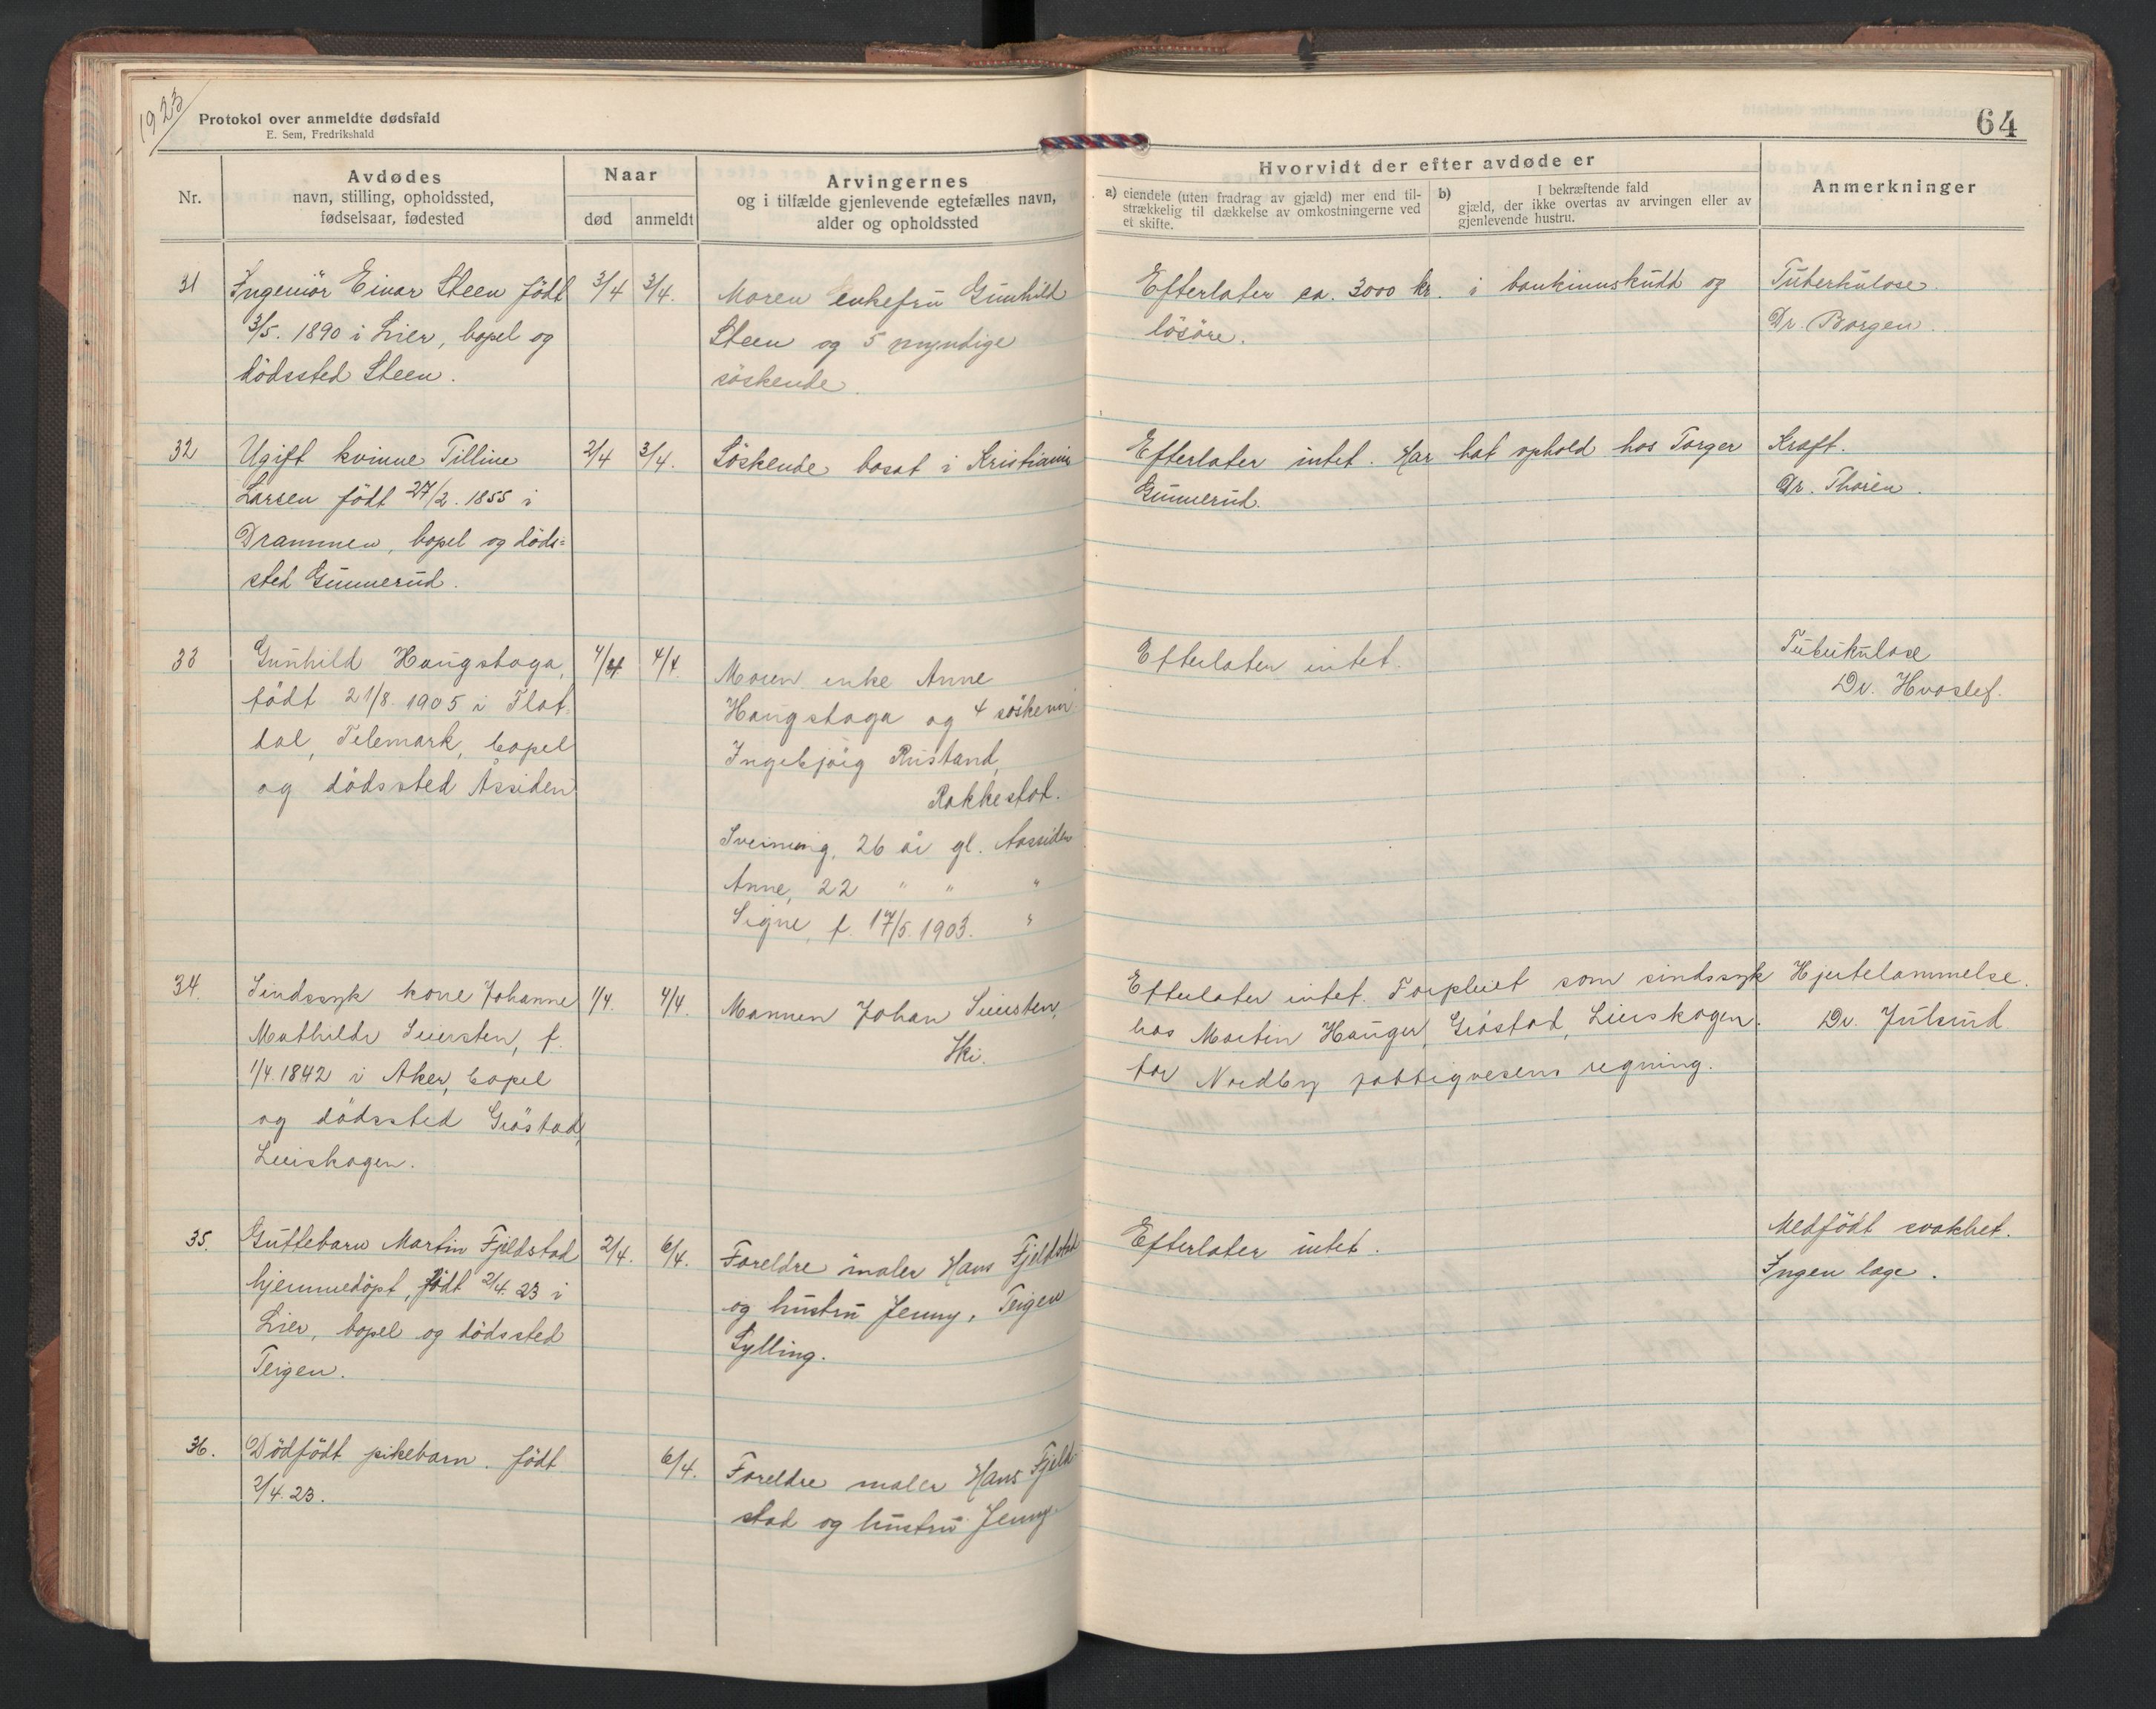 1923
Protokol over anmeldte dødsfald
E. Sem, Fredrikshald
64
Nr.
Avdødes
navn, stilling, opholdssted,
fødselsaar, fødested
Naar
død
anmeldt
Arvingernes
og i tilfælde gjenlevende egtefælles navn,
alder og opholdssted
Hvorvidt der efter avdøde er
a) eiendele (uten fradrag av gjæld) mer end til-
strækkelig til dækkelse av omkostningerne ved
et skifte.
b) I bekræftende fald
gjæld, der ikke overtas av arvingen eller av
gjenlevende hustru.
Anmerkninger
31
Ingeniör Einar Steen födt
3/5. 1890 i Lier, bopel og
dödssted Steen.
3/4
3/4.
Moren enkefru Gunhild
Steen og 5 myndige
söskende.
Efterlater ca. 3000 kr. i bankinnskudd og
lösöre.
Tuberkulose.
Dr. Borgen.
32
Ugift kvinne Tilline
Larsen födt 27/2. 1855 i
Drammen, bopel og döds=
sted Gunnerud.
2/4
3/4.
Söskende bosat i Kristiania
Efterlater intet. Har hat ophold hos Torger
Gunnerud.
Kraft.
Dr. Thorén.
33
Gunhild Haugstoga,
födt 21/8. 1905 i Flat-
dal, Telemark, bopel
og dödssted Åssiden
4/4
4/4.
Moren enke Anne
Haugstoga og 4 söskenn
Ingebjörg Rustand,
Rakkestat.
Sveinung, 26 år gl. Aassiden
Anne, 22 " " "
Signe, f. 17/5. 1903. "
Efterlater intet.
Tuberkulose
Dr. Hvoslef.
34.
Sindssyk kone Johanne
Mathilde Seiersten, f.
1/4. 1842 i Aker, bopel
og dödssted Gröstad,
Lierskogen.
1/4.
4/4.
Mannen Johan Seiersten,
Ski.
Efterlater intet. Forpleiet som sindssyk
hos Martin Hauger, Gröstad, Lierskogen.
for Nordby fattigvesens regning.
Hjertelammelse.
Dr. Julsrud
35.
Guttebarn Martin Fjeldstad
hjemmedöpt, födt 2/4. 23 i
Lier, bopel og dödssted
Teigen.
2/4.
6/4.
Foreldre maler Hans Fjeldstad
og hustru Jenny, Teigen
Sylling.
Efterlater intet.
Medfödt svakhet.
Ingen læge.
36.
Dödfödt pikebarn. födt
2/4. 23.
6/4.
Foreldre maler Hans Fjeld-
stad og hustru Jenny.